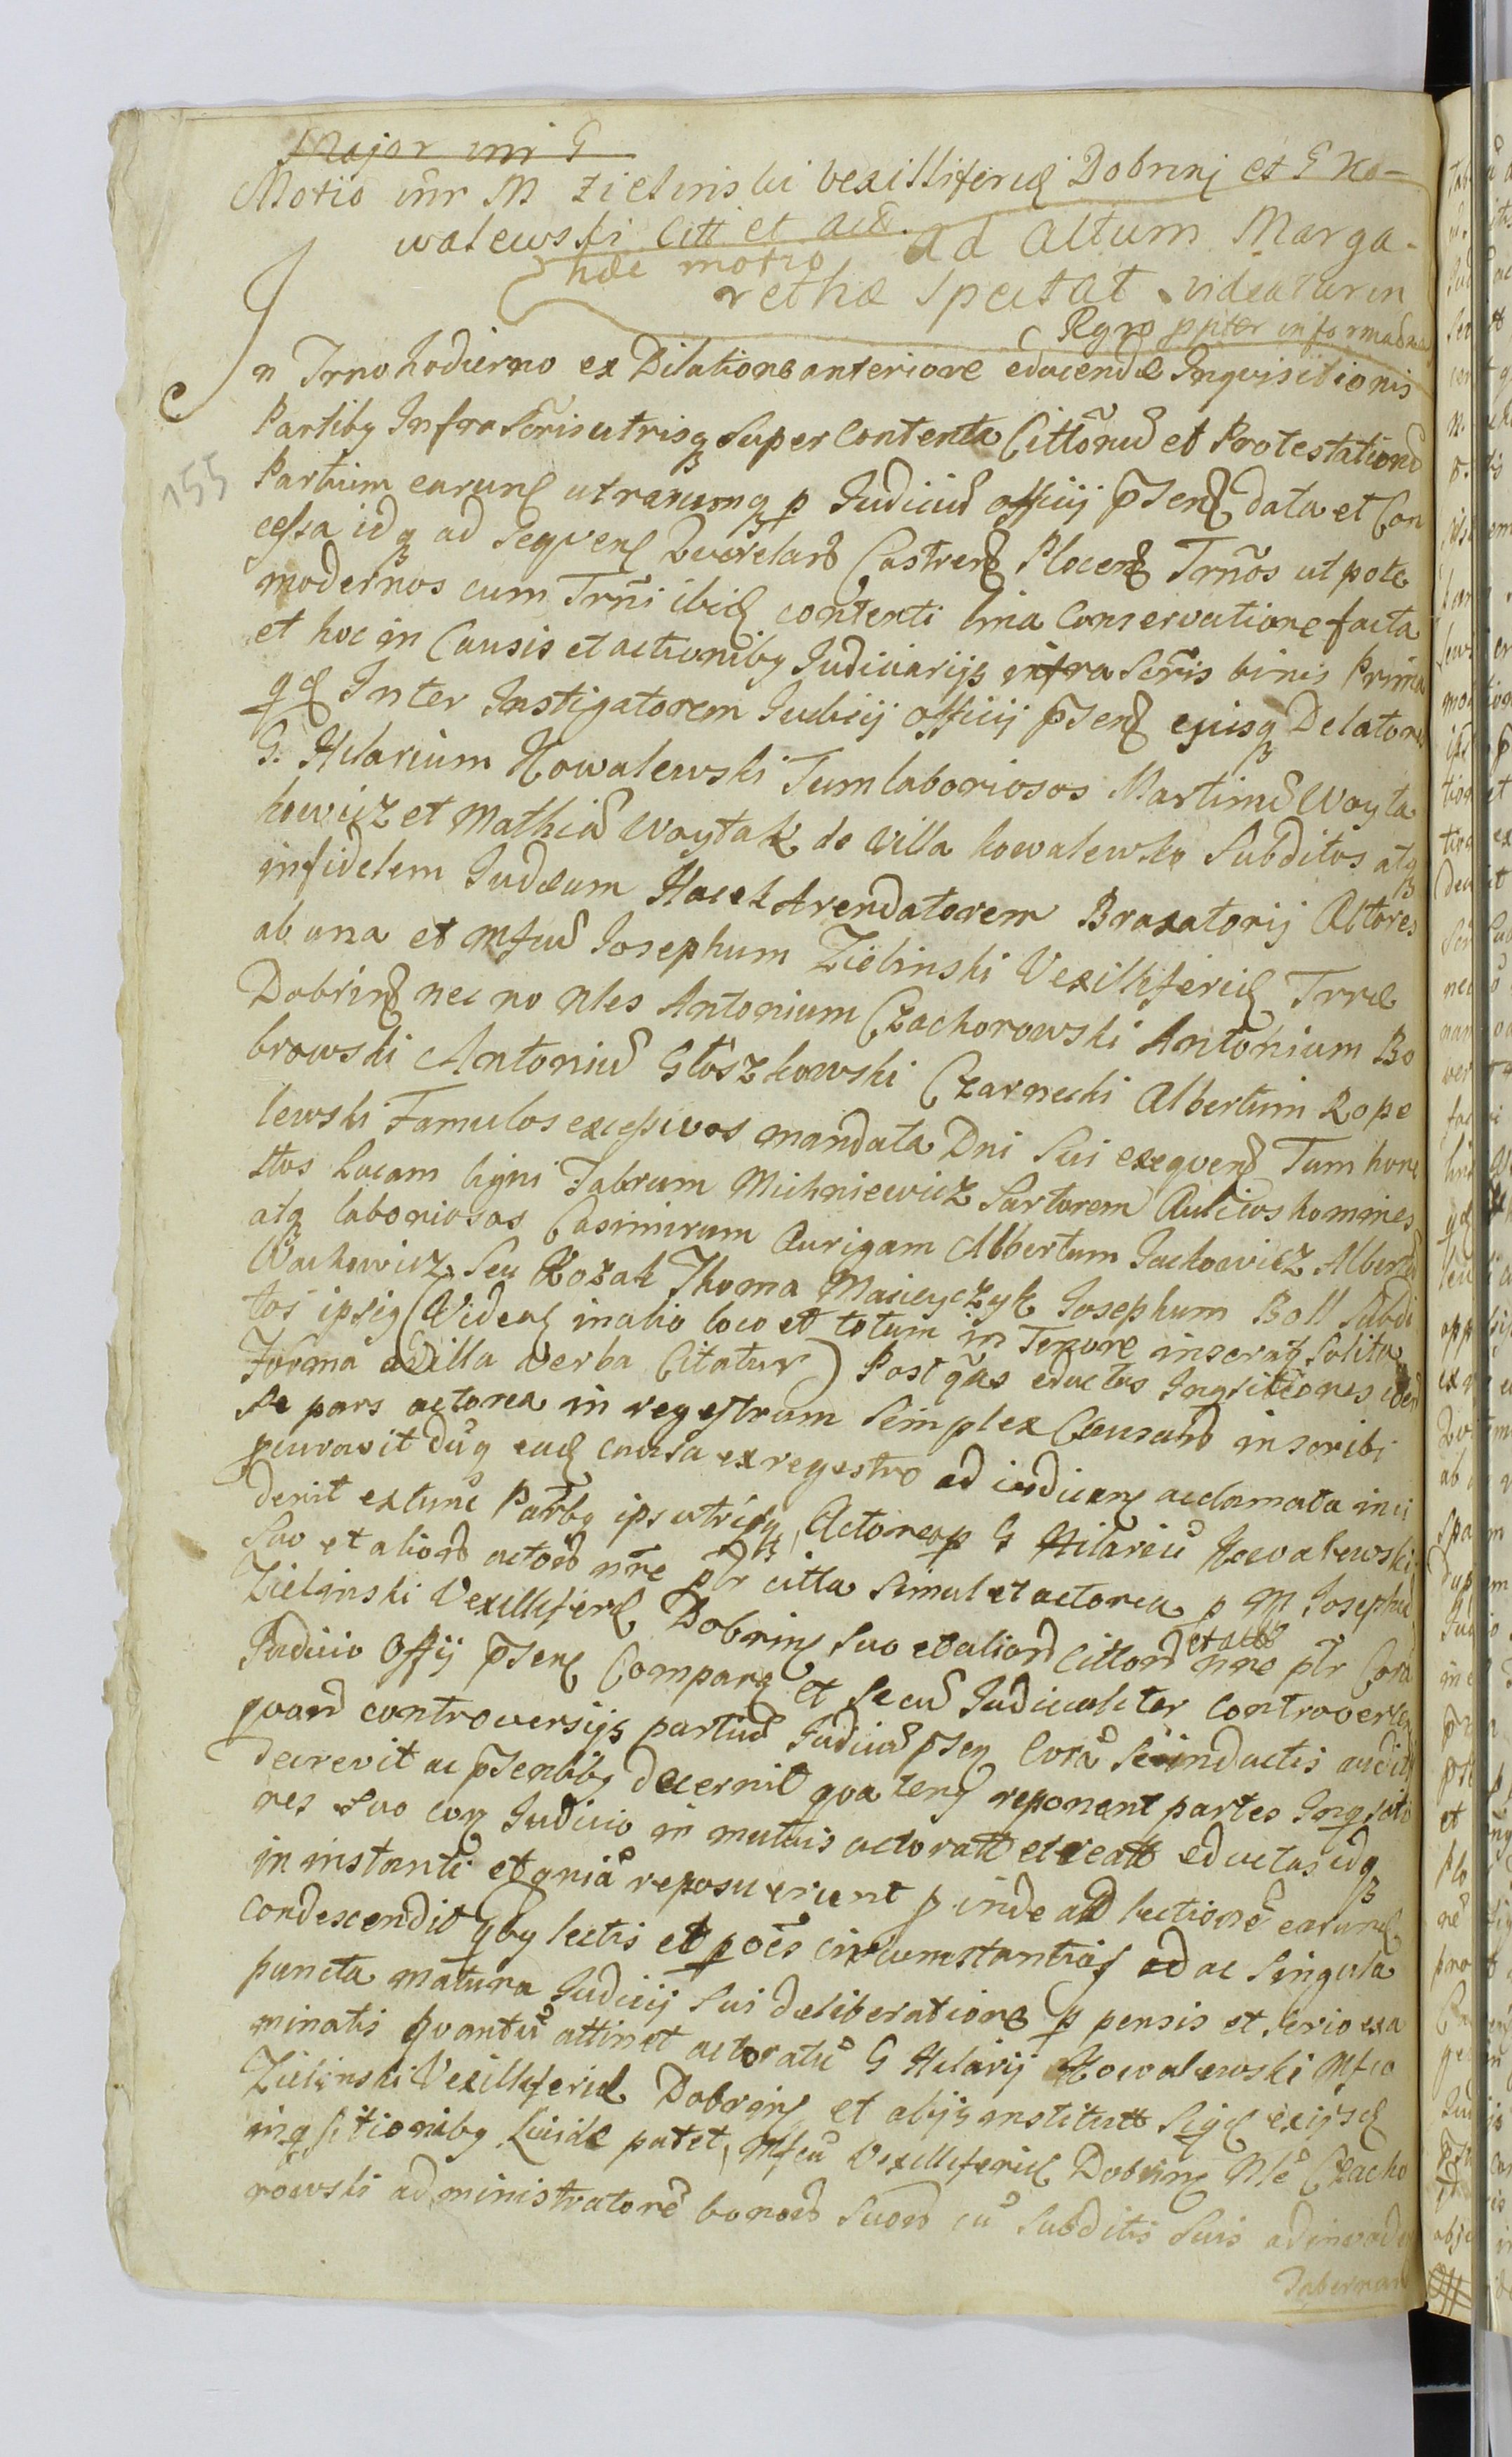 Major inr G
Motio inr M Zielinski Vexilliferū Dobrinę et G Ko-
walewski Citt et act. ad actum Marga-
hæc motio rethæ Spectat videatur in
Rgro ppter informaōnē
In Trno hodierno ex Dilatione anteriore educendæ Inquisitionis
Partibq Infra Scris utrisqȝ Super Contenta Cittōnū et Protestationū
155
Partium earunđ utrarumqȝ p Judiciū officij pñsenȝ data et Con
cessa idqȝ ad Sequenȝ Querelarȝ Castrenȝ Plocenȝ Trnōs utpote
modernos cum Trni ibiđ contenti bina Conservatione facta
et hoc in Causis et actionibq Judiciarijs infra Scris binis Prima
qđ Inter Instigatorem Judicij officij pñsenȝ ejusqȝ Delatores
G. Hilarium Kowalewski Tum laboriosos Martinū Woyta
kowicz et Mathiā Woytak de Villa Kowalewko Subditos atqȝ
infidelem Judæum Hacek Arendatorem Braxatorij Actores
ab una et Mfcū Josephum Zielinski Vexilliferū Trræ
Dobrinȝ nec no Nles Antonium Czachorowski Antonium Bo
browski Antoniū Głoszkowski Czarnecki Albertum Rope
lewski Famulos excessivos mandata Dni Sui exequenȝ Tum hone
stos Lucam ligni Fabrum Michniewicz Sartorem Aulicos homines
atqȝ laboriosos Casimirum Aurigam Albertum Jackowicz Albertū
Wackowicz Seu Kozak Thoma Maciejczyk Josephum Boll Subdi
tos ipsiq (Videaȝ in alio loco et totum in Tenore inseraȝ Solita
Forma ad illa verba Citatur) Post qas eductas Inqsitiones eđ
Se pars actorea in regestrum Simplex Causarȝ inscribi
pcuravit dūq eađ causa ex regestro ad iudicanȝ acclamata inci
derit extunc Partbq ips utrisqȝ, Actorea p G Hilariū Kowalewski
Suo et aliorȝ actorȝ nne pllr citta Simul et actorea p M Josephū
Zielinski Vexilliferȝ Dobrinȝ Suo et aliorȝ Cittorȝ et actorȝ nne pllr Corā
Judicio Offij pñsenȝ Comparȝ et Secū Judicialiter Controverten
quarȝ controversijs partiū Judiciū pñsenȝ Corā Se inductis auditis
decrevit ac pñsentibq decernit quatenȝ reponant partes Inqsitio
nes Suo coꝝ Judicio in mutuis actoratt et reatt eductas idqȝ
in instanti et qniā reposuerunt pinde ad lectionē earunđ
condescendit qbq lectis et p oēs circumstantias ad ac Singula
puncta matura Judicij Sui deliberatione ppensis et Serio exa
minatis Quantū attinet actoratū G Hilarij Kowalewski Mfco
Zielinski Vexilliferū Dobrinȝ et alijs institutt Siqđ ex ijsđ
inqsitionibq Luide patet, Mfcū Vexilliferū Dobrinȝ Nlē Czacho
rowski administratorē bonorȝ Suorȝ cū Subditis Suis ad invaden
Tabernam